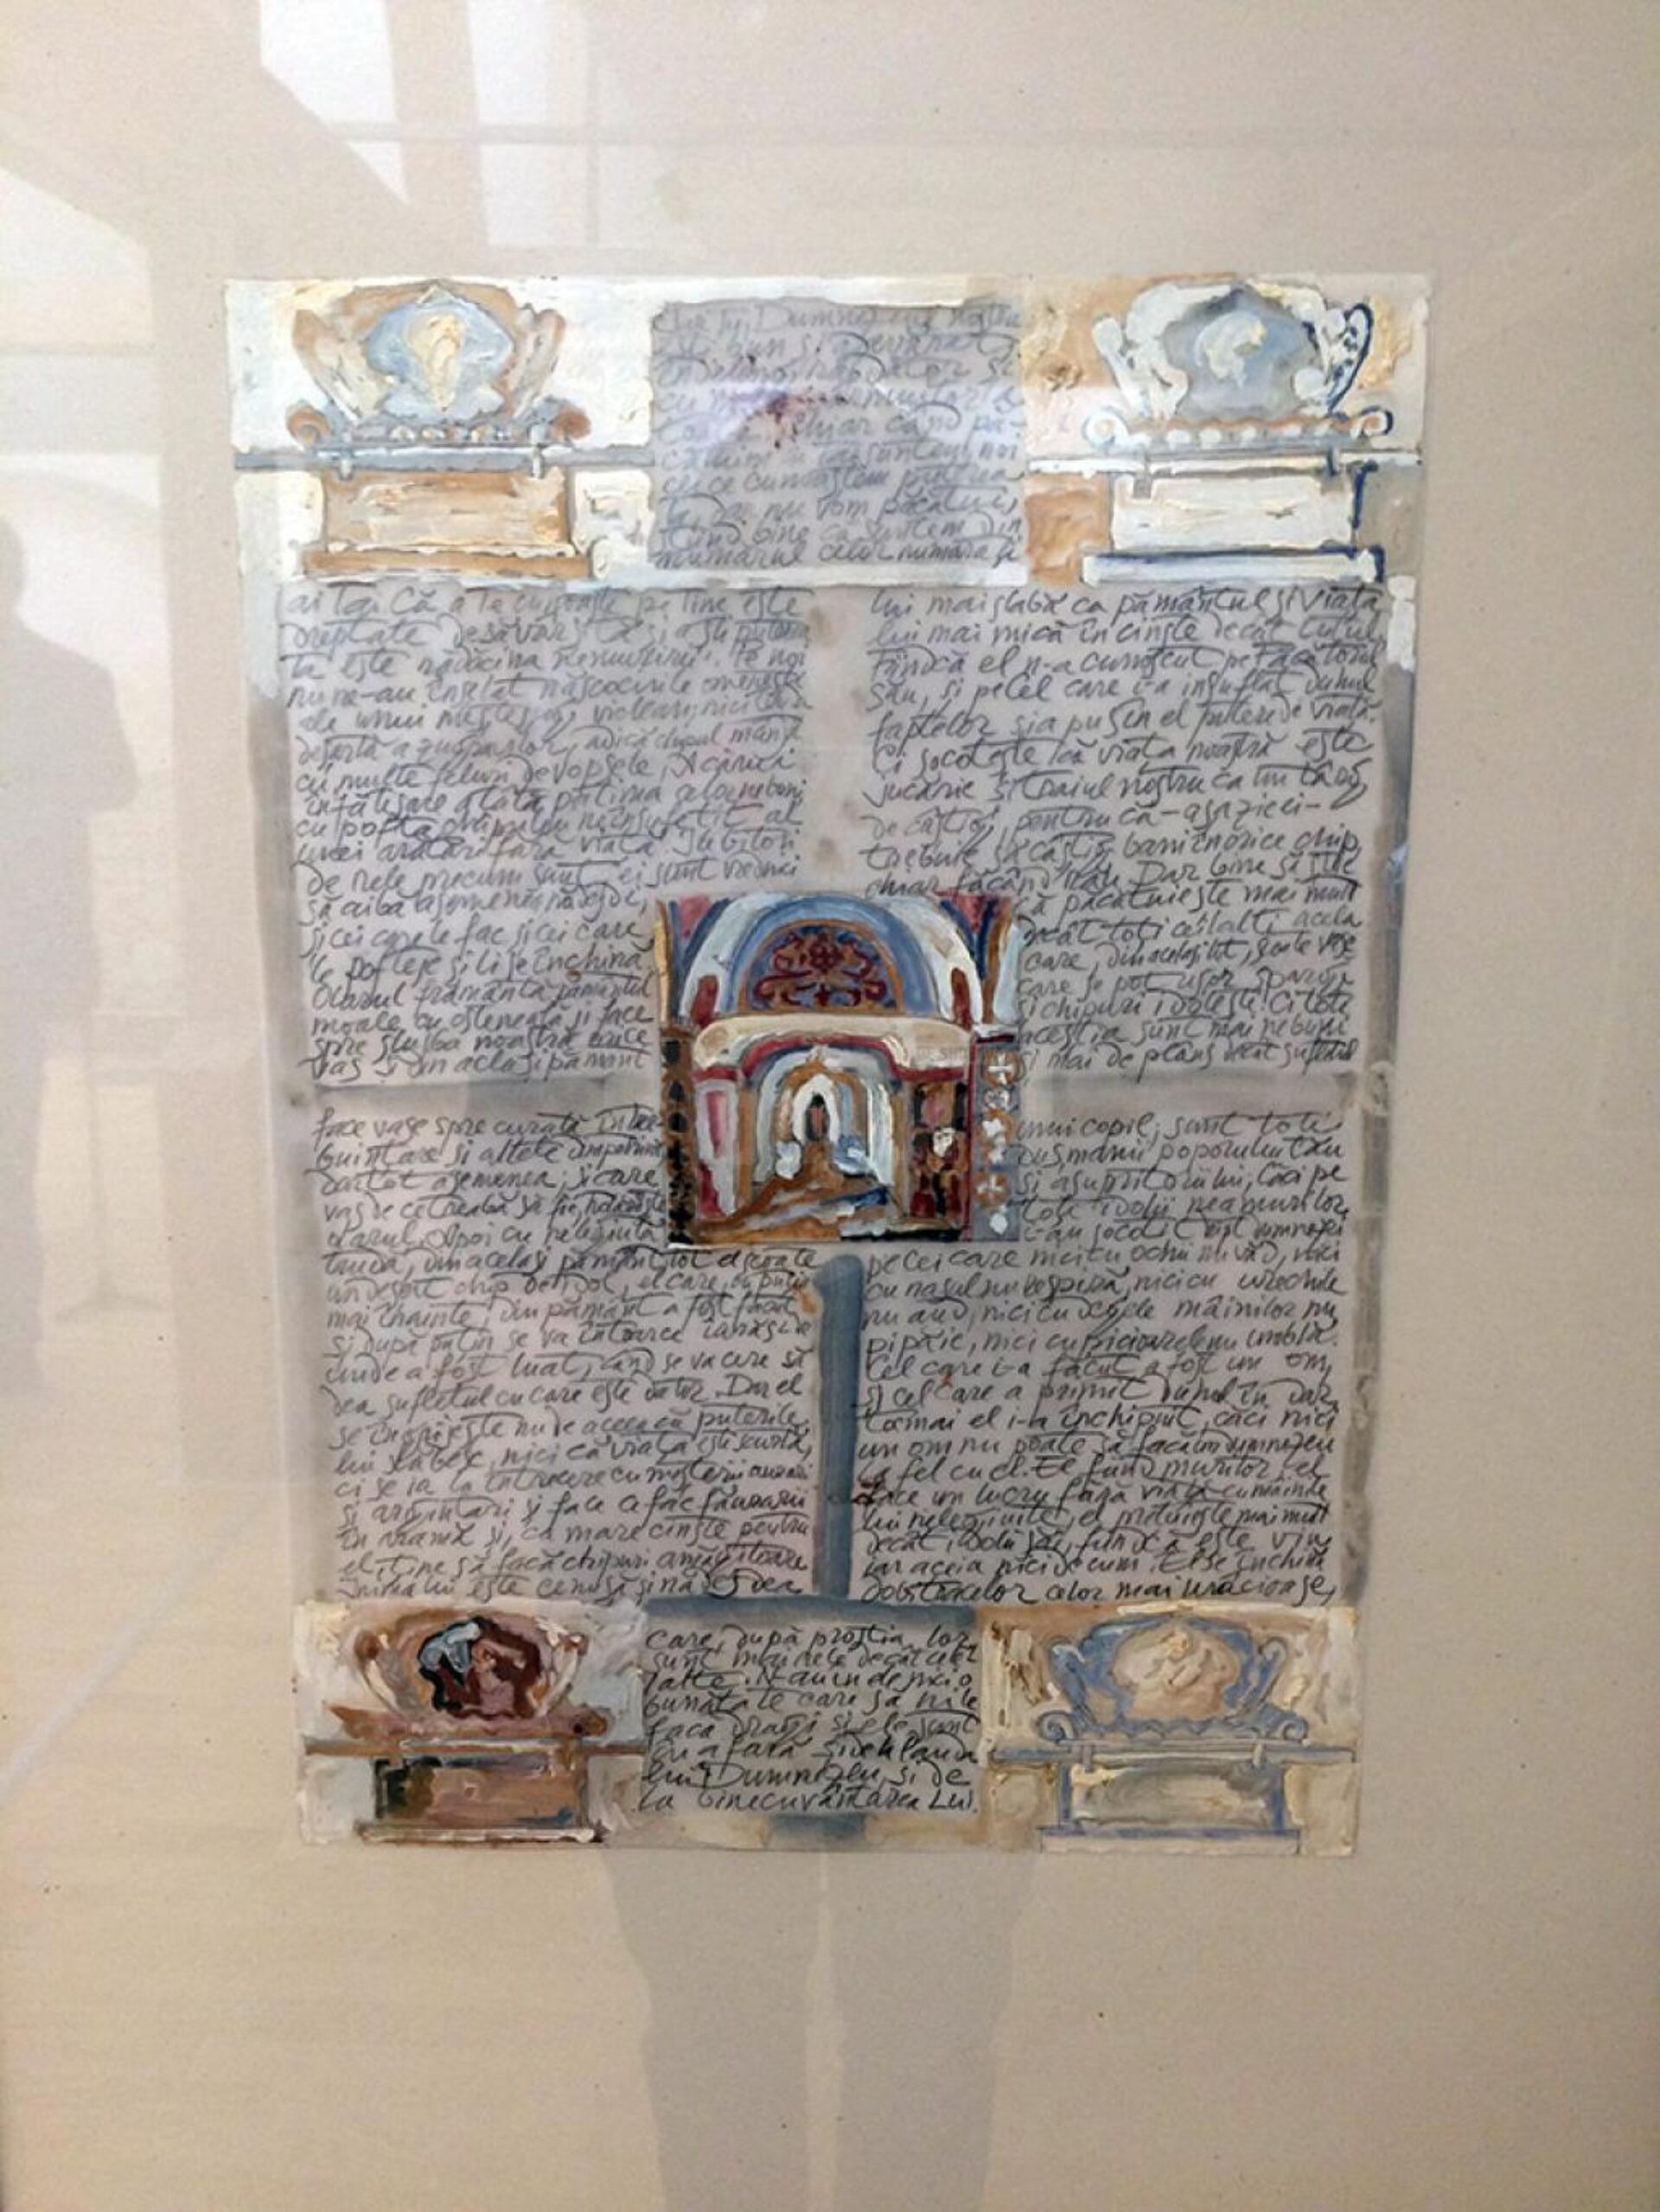 Dar Tu, Dumnezeul nostru
ești bun și adevărat
îndelung răbdător și
cu
toate. Chiar când pă-
cătuim ai tăi suntem, noi
cei ce cunoaștem puterea
ta, dar nu vom păcătui,
știind bine că suntem din
numărul celor numărați
ai tăi. Că a Te cunoaște pe Tine este
dreptate desăvârșită și a ști puterea
ta este rădăcina nemuririi. Pe noi
nu ne-au înșelat născocirile omenești
ale unui meșteșug viclean, nici
deșartă a zugravilor, adică chipul mânjit
cu multe feluri de vopsele, a cărui
înfățișare ațâță patima celor nebuni
cu pofta chipului neînsuflețit al
unei arătări fără viață. Iubitori
de rele precum sunt ei sunt vrednici
să aibă asemenea nădejdi,
și cei care le fac și cei care
le poftesc și li se închină.
Olarul frământă pământul
moale cu osteneală și face
spre slujba noastră orice
vas și din același pământ
face vase spre curată între-
buințare și altele dimpotrivă
dar tot asemenea; și care
vas de ce treabă să fie, hotărăște
olarul. Apoi cu nelegiuită
trudă, din același pământ tot el scoate
un deșert chip de idol, el care, cu puțin
mai înainte, din pământ a fost făcut
și după puțin se va întoarce iarăși de
unde a fost luat, când se va cere să
dea sufletul cu care este dator. Dar el
se îngrijește nu de aceea că puterile
lui slabesc, nici că viața este scurtă,
ci se ia la întrecere cu meșterii aurari
și argintari și face ce fac făurarii
în aramă și, ca mare cinste pentru
el, ține să facă chipuri amăgitoare
Inima lui este cenușă și nădejdea
lui mai slabă ca pământul și viața
lui mai mică în cinste decât lutul,
Fiindcă el n-a cunoscut pe Făcătorul
Său, și pe Cel care i-a insuflat duhul
faptelor și a pus în el putere de viață.
Ci socotește că viața noastră este
jucărie și traiul nostru ca un târg
de câștig, pentru că - așa zice el -
trebuie să câștigi bani în orice chip,
chiar făcând rău. Dar bine să știe
că păcătuiește mai mult
decât toți ceilalți acela
care, din același lut, scoate vase
care se pot ușor sparge
și chipuri idolești. Ci toți
aceștia sunt mai nebuni
și mai de plâns decât sufletul
unui copil; sunt toți
dușmanii poporului tău
și asupritorii lui, Căci pe
toți idolii neamurilor
i-au socotit drept dumnezei
pe cei care nici cu ochii nu văd, nici
cu nasul nu respiră, nici cu urechile
nu aud, nici cu degetele mâinilor nu
pipăie, nici cu picioarele nu umblă.
Cel care i-a făcut a fost un om,
și cel care a primit duhul în dar
tocmai el i-a închipuit, căci nici
un om nu poate să facă un dumnezeu
la fel cu el. El fiind muritor, el
face un lucru fără viață cu mâinile
lui nelegiuite; el prețuiește mai mult
decât idolii săi, fiindcă este viu
iar aceia nicidecum. El se închină
dobitoacelor celor mai urâcioase,
care, după prostia lor,
sunt mai rele decât cele-
lalte. N-au în de nicio
bunătate care să ni le
facă dragi și ele sunt
în afară și de lauda
lui Dumnezeu, și de
la binecuvântarea Lui.